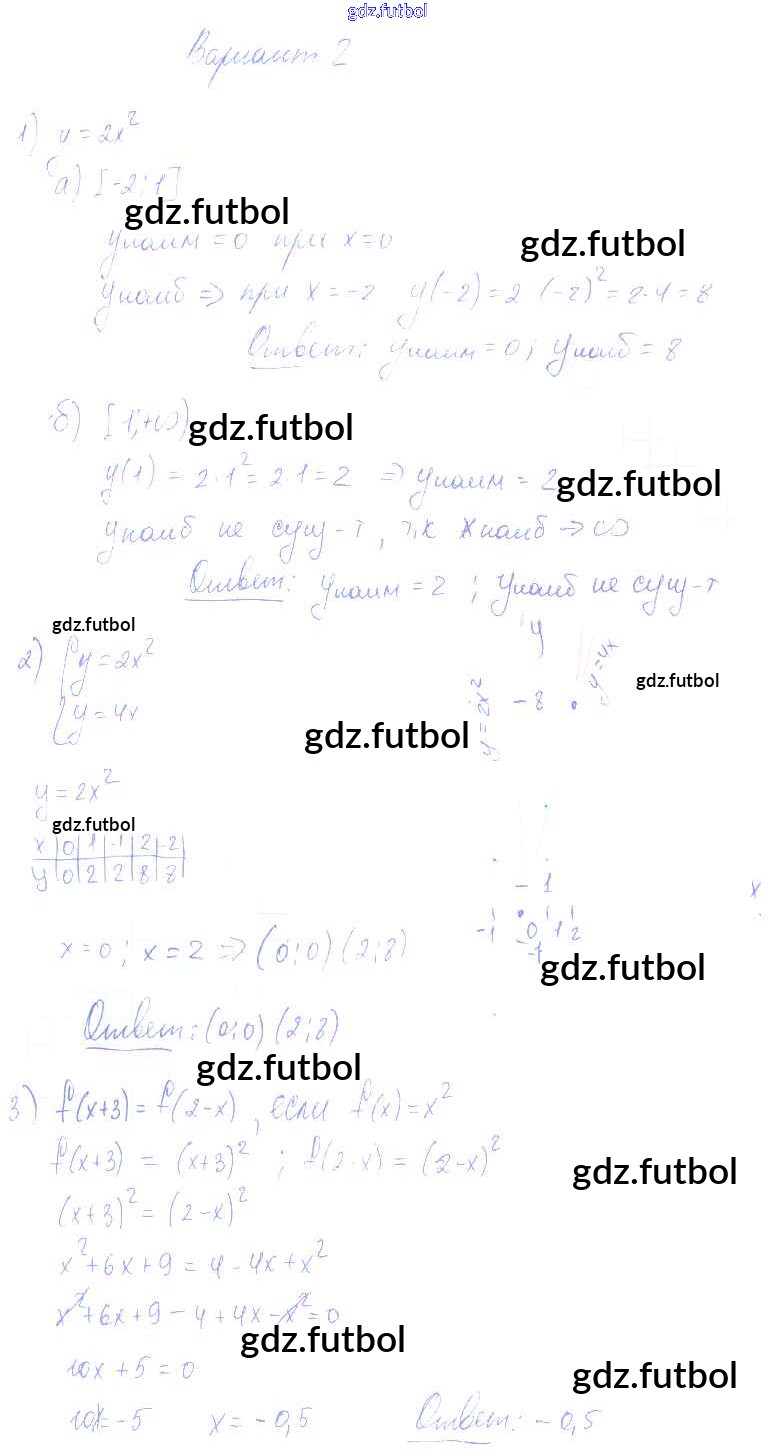 gdz.futbol
Вариант 2
1) y = 2x²
а) [-2; 1]
gdz.futbol
yнаим = 0 при x = 0
gdz.futbol
yнаиб => при x = -2 y(-2) = 2 (-2)² = 2·4 = 8
Ответ: yнаим = 0; yнаиб = 8
б) [1; +∞)
gdz.futbol
y(1) = 2·1² = 2·1 = 2 => yнаим = 2
gdz.futbol
yнаиб не сущ-т, т.к xнаиб → ∞
Ответ: yнаим = 2; yнаиб не сущ-т
gdz.futbol
2) { y = 2x²
y = 4x
y
y = 2x²
- 8
y = 4x
gdz.futbol
gdz.futbol
y = 2x²
gdz.futbol
x | 0 | 1 | -1 | 2 | -2 |
y | 0 | 2 | 2 | 8 | 8 |
- 1
x
-1 0 1 2
-1
x = 0; x = 2 => (0; 0) (2; 8)
gdz.futbol
Ответ: (0; 0) (2; 8)
gdz.futbol
3) f(x+3) = f(2-x), если f(x) = x²
f(x+3) = (x+3)² ; f(2-x) = (2-x)²
gdz.futbol
(x+3)² = (2-x)²
x² + 6x + 9 = 4 - 4x + x²
x² + 6x + 9 - 4 + 4x - x² = 0
gdz.futbol
10x + 5 = 0
gdz.futbol
10x = -5 x = -0,5 Ответ: -0,5